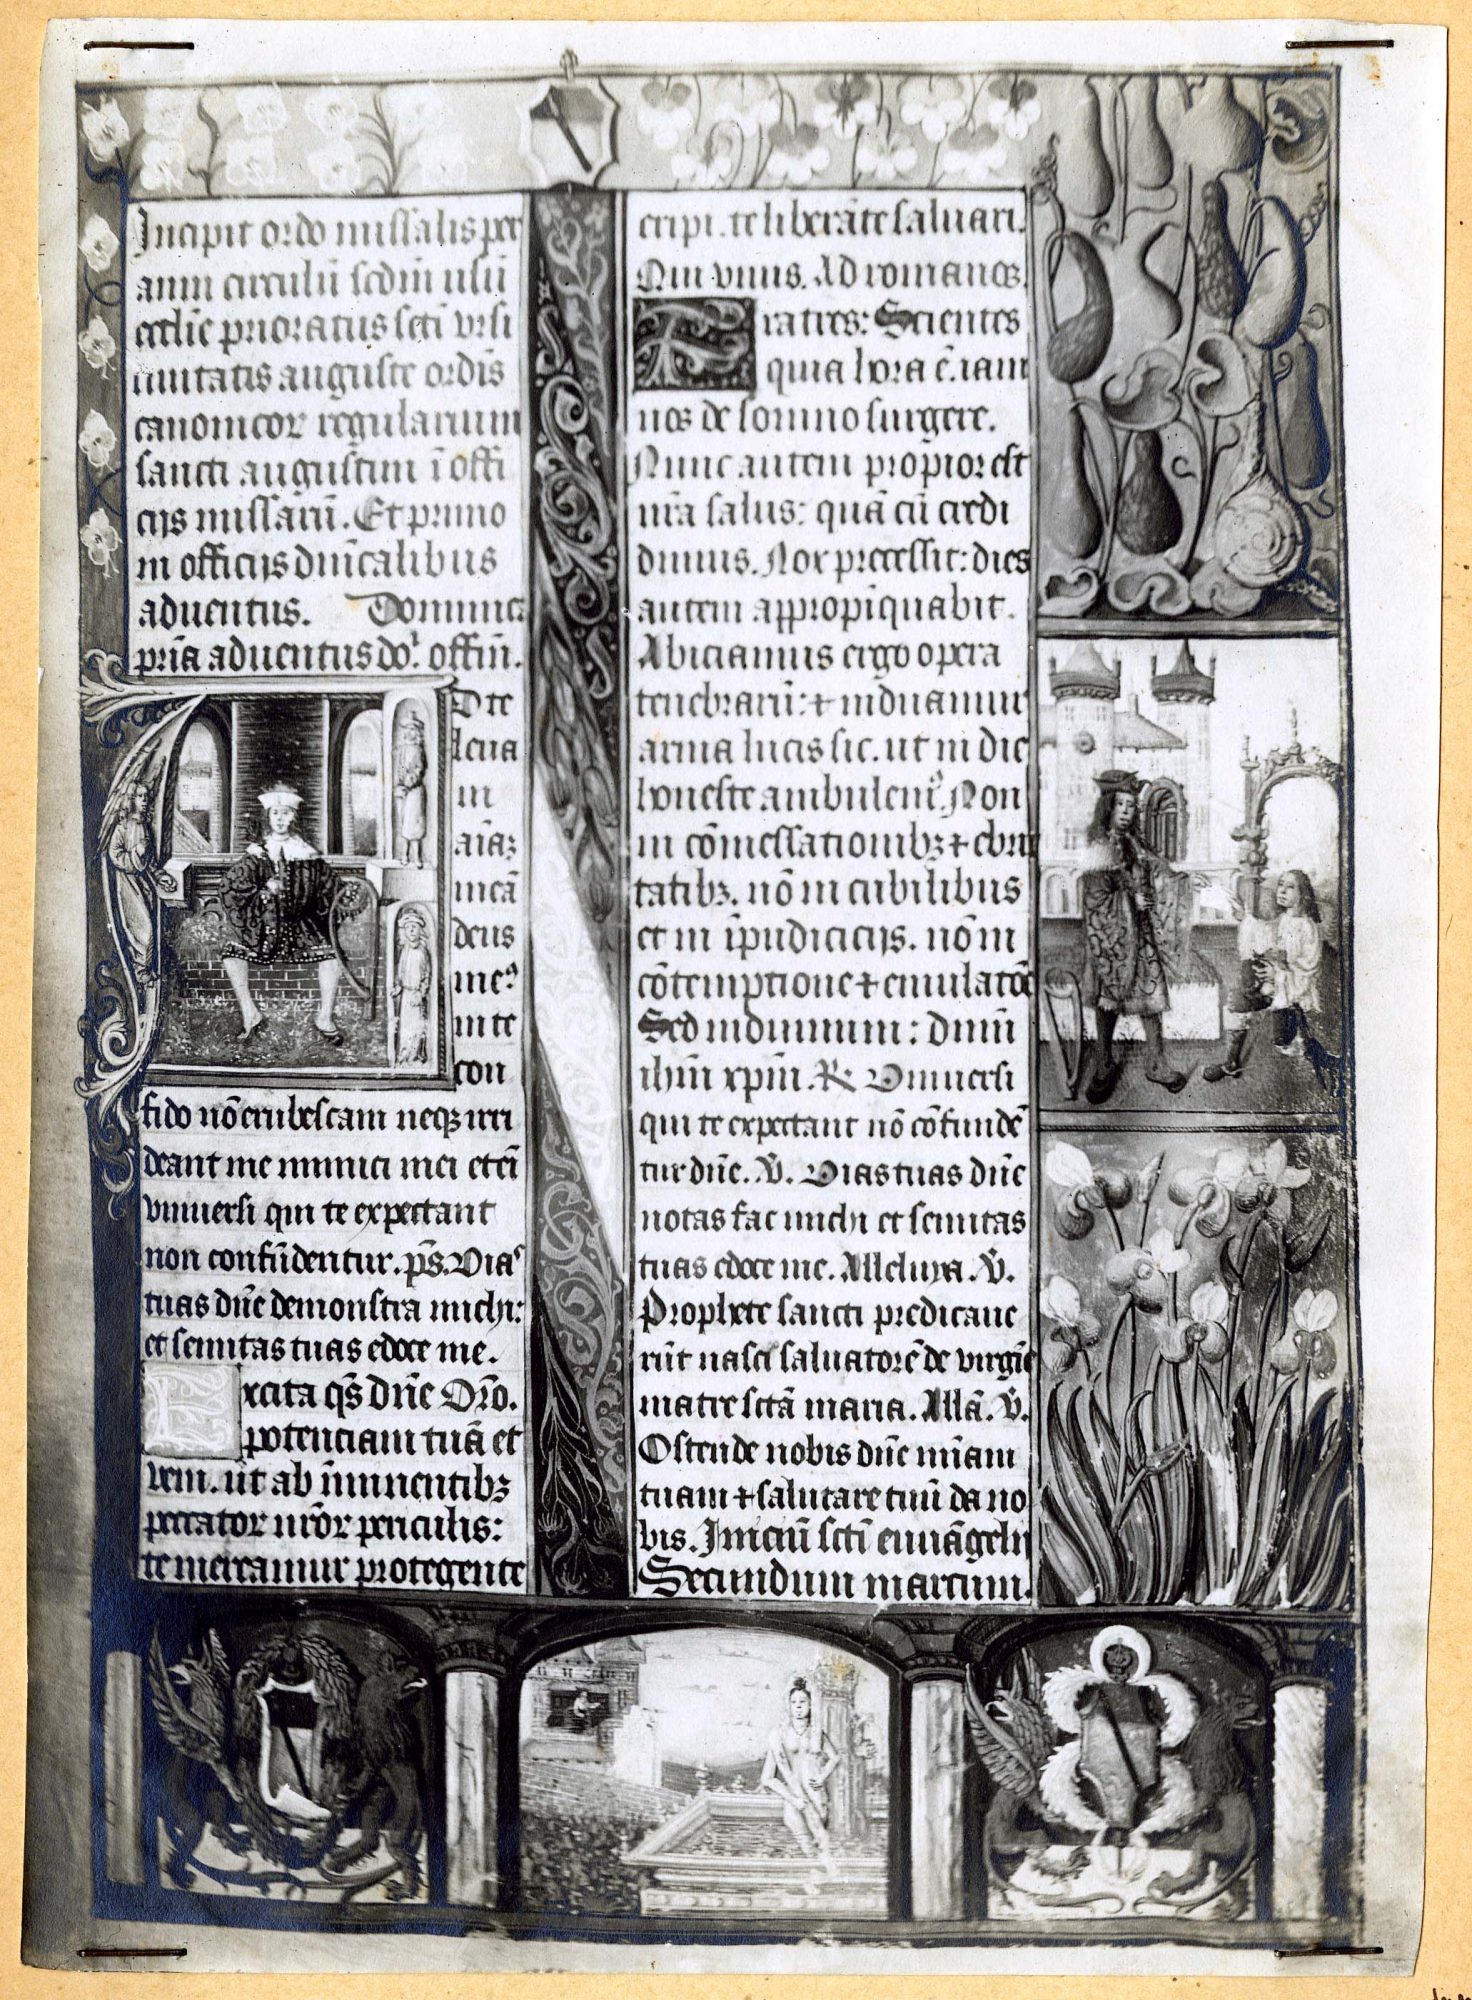 Incipit ordo missalis per
anni circulū scdm̄ usū
ecclīe prioratus scti vrsi
ciuitatis auguste ordīs
canonicor regularium
sancti augustini ī offi
cijs missarū. Et primo
in officijs dnīcalibus
aduentus. Dominica
prīa aduentus do. offm̄.
D te
leua
ui
aīaꝫ
meā
deus
meꝰ
in te
con
fido nō erubescam neqꝫ irri
deant me inimici mei etenī
vniuersi qui te expectant
non confūdentur. p̄s. Vias
tuas dn̄e demonstra michi:
et semitas tuas edoce me.
Excita qs̄ dn̄e Orō.
potenciam tuā et
veni. ut ab īminentibꝫ
peccator nr̄or periculis:
te mereamur protegente
eripi. te liberāte saluari.
Qui viuis. Ad romanos.
Fratres: Scientes
quia hora ē. iam
nos de somno surgere.
Nunc autem propior est
nr̄a salus: quā cū credi
dimus. Nox precessit: dies
autem appropīquabit.
Abiciamus ergo opera
tenebrarū: ⁊ induamur
arma lucis sic. ut in die
honeste ambulemꝰ. Non
in cōmessationibꝫ ⁊ ebrie
tatibꝫ. nō in cubilibus
et in īpudicicijs. nō in
cōtemptione ⁊ emulatōe
Sed induimini: dnm̄
ihm̄ xpm̄. ℟ Vniuersi
qui te expectant nō cōfundē
tur dn̄e. ℣. Vias tuas dn̄e
notas fac michi et semitas
tuas edoce me. Alleluya. ℣.
Prophete sancti predicaue
rūt nasci saluatorē de virgīe
matre sctā maria. Allā. ℣.
Ostende nobis dn̄e mīam
tuam ⁊ salutare tuū da no
bis. Iniciū scti euuāgelij
Secundum marcum.